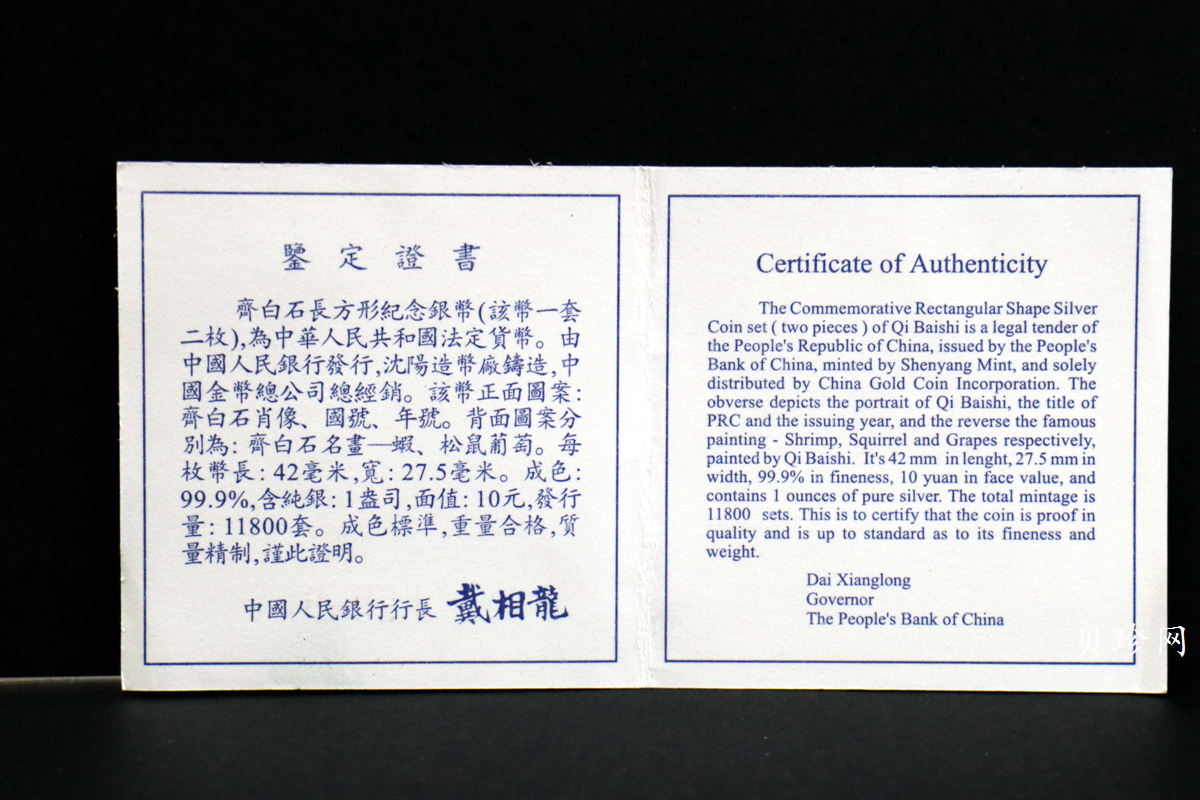 鑒定證書
齊白石長方形紀念銀幣(該幣一套
二枚),為中華人民共和國法定貨幣。由
中國人民銀行發行,沈陽造幣廠鑄造,中
國金幣總公司總經銷。該幣正面圖案:
齊白石肖像、國號、年號。背面圖案分
別為:齊白石名畫—蝦、松鼠葡萄。每
枚幣長:42毫米,寬:27.5毫米。成色:
99.9%,含純銀:1盎司,面值:10元,發行
量:11800套。成色標準,重量合格,質
量精制,謹此證明。
中國人民銀行行長 戴相龍
Certificate of Authenticity
The Commemorative Rectangular Shape Silver
Coin set ( two pieces ) of Qi Baishi is a legal tender of
the People's Republic of China, issued by the People's
Bank of China, minted by Shenyang Mint, and solely
distributed by China Gold Coin Incorporation. The
obverse depicts the portrait of Qi Baishi, the title of
PRC and the issuing year, and the reverse the famous
painting - Shrimp, Squirrel and Grapes respectively,
painted by Qi Baishi. It's 42 mm in lenght, 27.5 mm in
width, 99.9% in fineness, 10 yuan in face value, and
contains 1 ounces of pure silver. The total mintage is
11800 sets. This is to certify that the coin is proof in
quality and is up to standard as to its fineness and
weight.
Dai Xianglong
Governor
The People's Bank of China
贝珍网